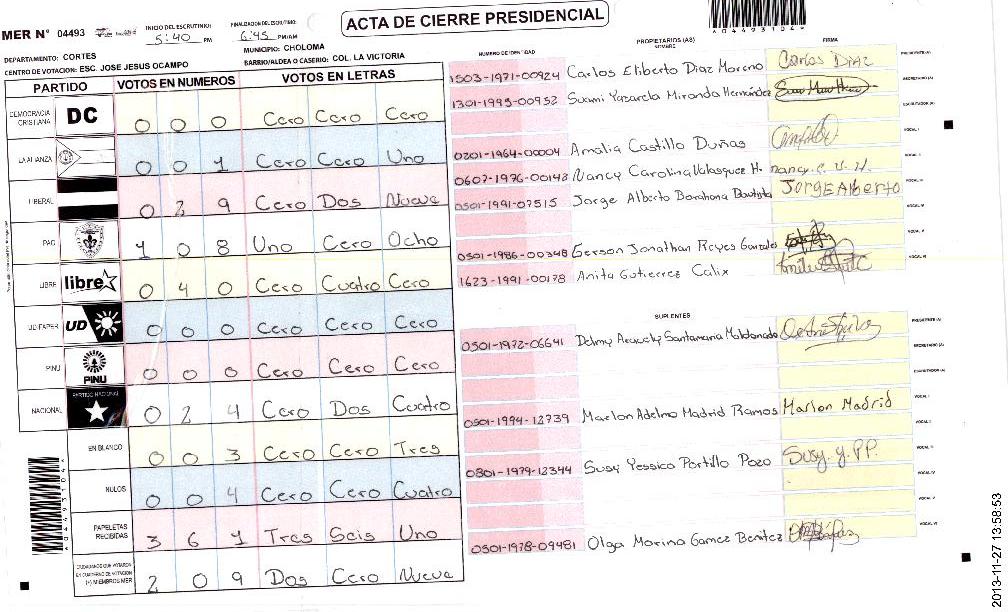 ACTA DE CIERRE PRESIDENCIAL
MER N° 04493
INICIO DEL ESCRUTINIO: 5:40 PM
FINALIZACION DEL ESCRUTINIO: 6:45 PM/AM
DEPARTAMENTO: CORTES
MUNICIPIO: CHOLOMA
CENTRO DE VOTACION: ESC. JOSE JESUS OCAMPO
BARRIO/ALDEA O CASERIO: COL. LA VICTORIA
PARTIDO VOTOS EN NUMEROS VOTOS EN LETRAS
DEMOCRACIA CRISTIANA DC 0 0 0 Cero Cero Cero
LA ALIANZA 0 0 1 Cero Cero Uno
LIBERAL 0 2 9 Cero Dos Nueve
PAC 1 0 8 Uno Cero Ocho
LIBRE libre 0 4 0 Cero Cuatro Cero
UD-FAPER UD 0 0 0 Cero Cero Cero
PINU PINU 0 0 0 Cero Cero Cero
NACIONAL PARTIDO NACIONAL 0 2 4 Cero Dos Cuatro
EN BLANCO 0 0 3 Cero Cero Tres
NULOS 0 0 4 Cero Cero Cuatro
PAPELETAS RECIBIDAS 3 6 1 Tres Seis Uno
CIUDADANOS QUE VOTARON EN CUADERNO DE VOTACION (+) MIEMBROS MER 2 0 9 Dos Cero Nueve
NUMERO DE IDENTIDAD PROPIETARIOS (AS) NOMBRE FIRMA
1503-1971-00924 Carlos Eliberto Diaz Moreno Carlos DIAZ PRESIDENTE (A)
1301-1995-00952 Suami Yazarela Miranda Hernández SECRETARIO (A)
ESCRUTADOR (A)
0201-1964-00004 Amalia Castillo Duñas VOCAL I
0607-1976-00148 Nancy Carolina Velasquez H. nancy. C. V. H. VOCAL II
0501-1991-07515 Jorge Alberto Barahona Bautista JORGE Alberto VOCAL III
VOCAL IV
0501-1986-00348 Gerson Jonathan Reyes Gonzales VOCAL V
1623-1991-00178 Anita Gutierrez Calix VOCAL VI
SUPLENTES
0501-1972-06641 Delmy Aracely Santamaria Maldonado PRESIDENTE (A)
SECRETARIO (A)
ESCRUTADOR (A)
0501-1994-12739 Marlon Adelmo Madrid Ramos Marlon Madrid VOCAL I
VOCAL II
0801-1979-12344 Susy Yessica Portillo Pozo Susy. y. P.P. VOCAL III
VOCAL IV
VOCAL V
0501-1978-09481 Olga Marina Gamez Benitez VOCAL VI
2013-11-27 13:58:53